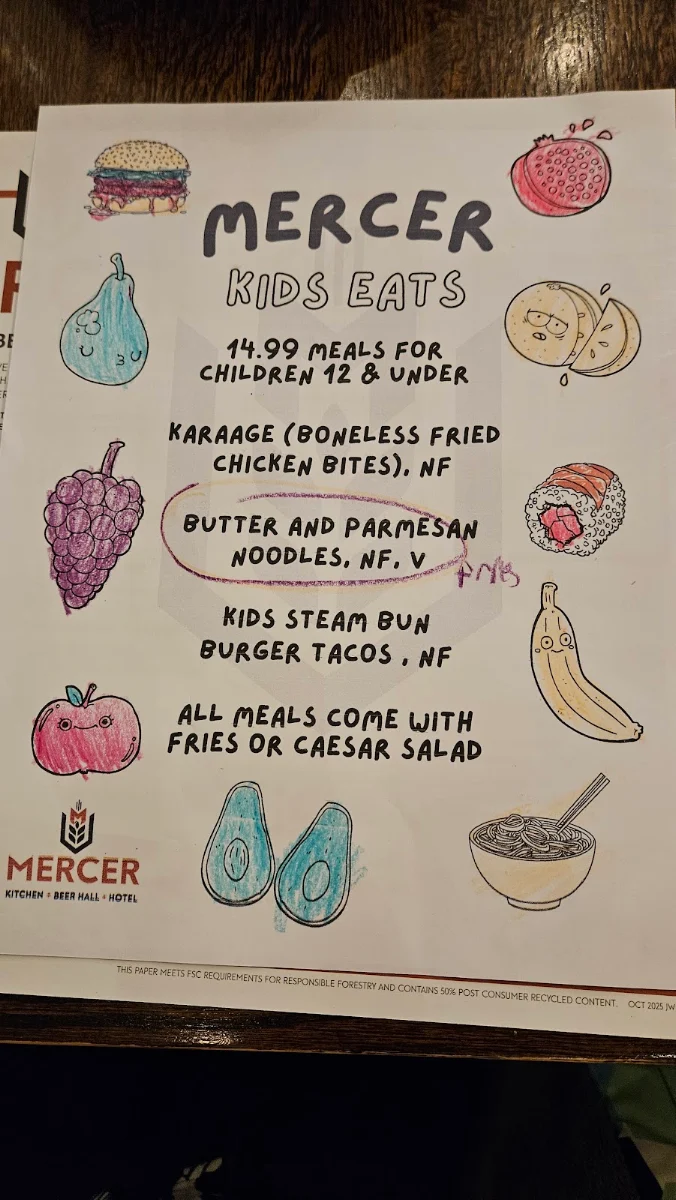 MERCER
KIDS EATS
14.99 MEALS FOR
CHILDREN 12 & UNDER
KARAAGE (BONELESS FRIED
CHICKEN BITES), NF
BUTTER AND PARMESAN
NOODLES, NF, V
KIDS STEAM BUN
BURGER TACOS , NF
ALL MEALS COME WITH
FRIES OR CAESAR SALAD
MERCER
KITCHEN + BEER HALL + HOTEL
THIS PAPER MEETS FSC REQUIREMENTS FOR RESPONSIBLE FORESTRY AND CONTAINS 50% POST CONSUMER RECYCLED CONTENT. OCT 2025 JW